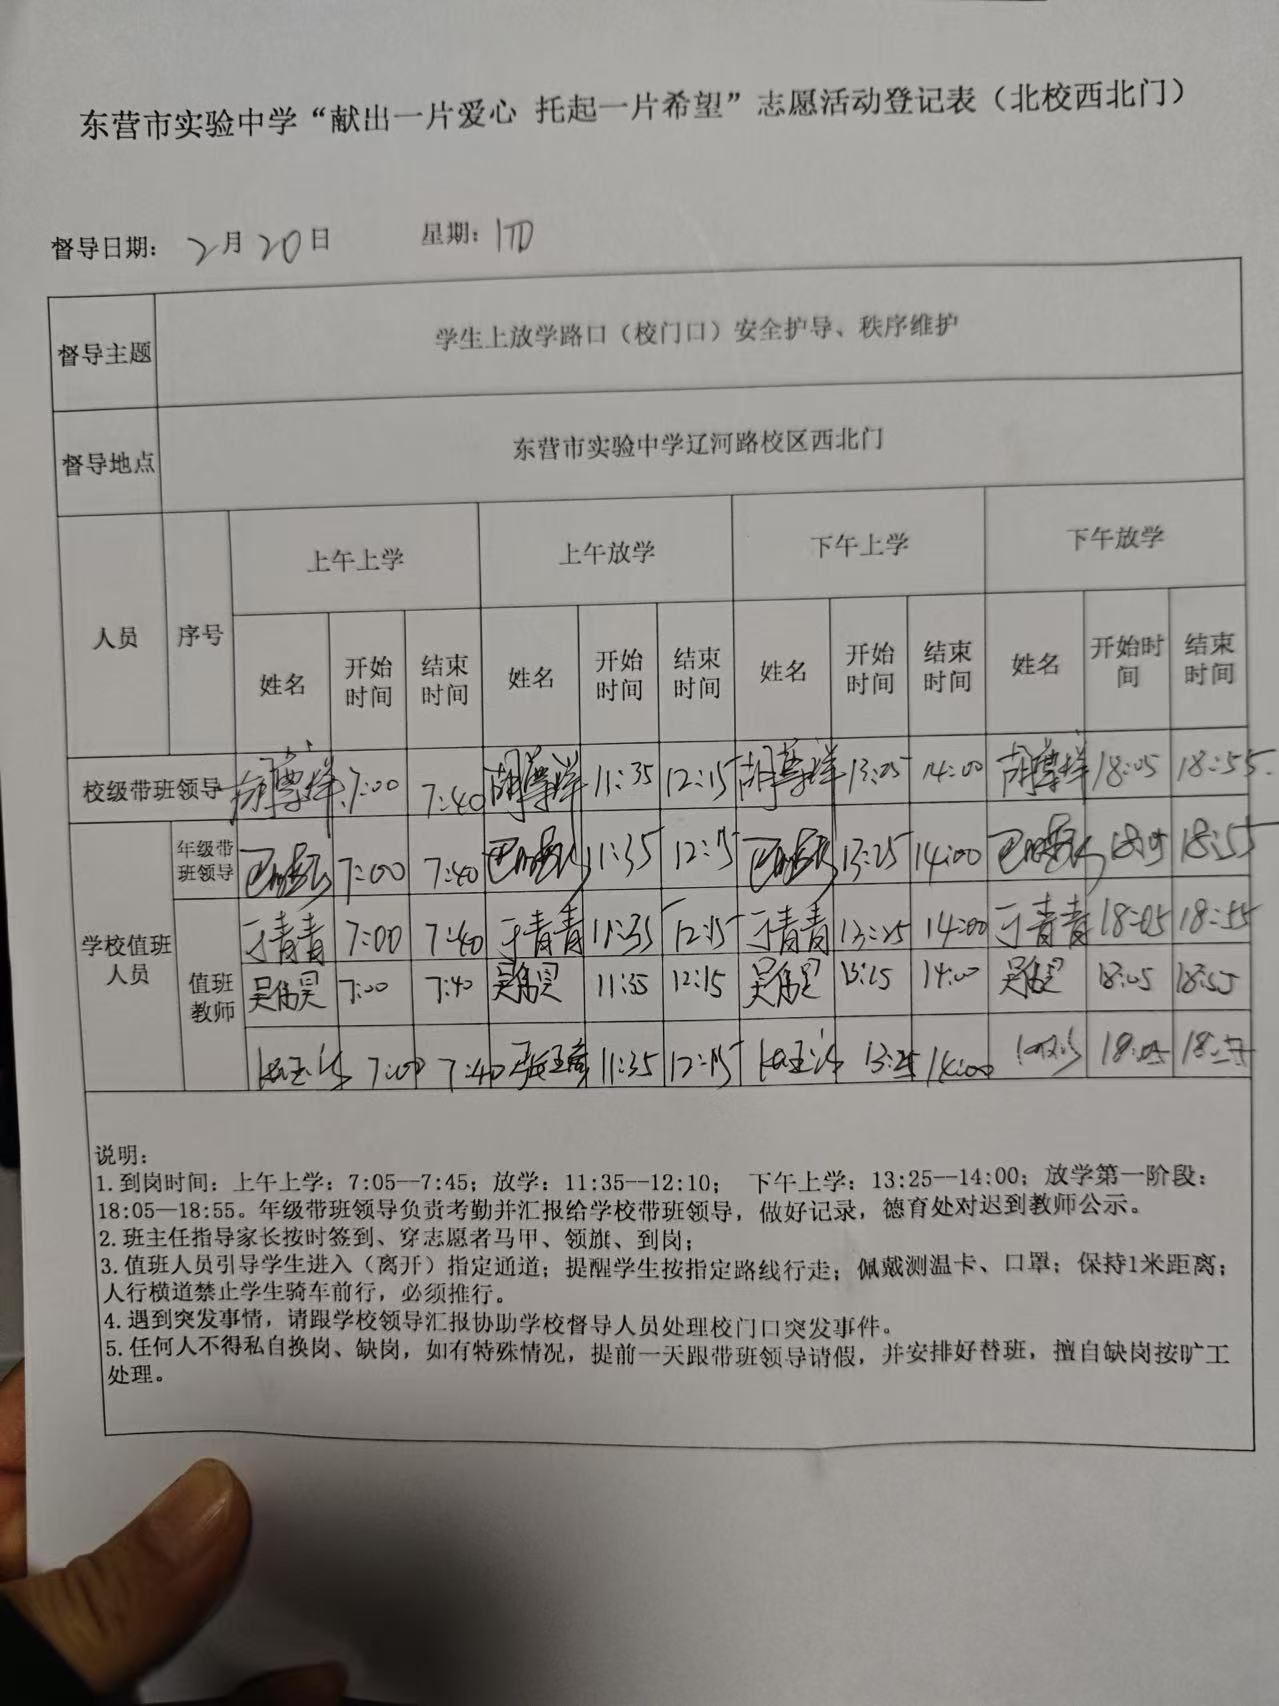 东营市实验中学“献出一片爱心 托起一片希望”志愿活动登记表（北校西北门）
督导日期： 2月20日 星期：四
督导主题 学生上放学路口（校门口）安全护导、秩序维护
督导地点 东营市实验中学辽河路校区西北门
人员 序号 上午上学 上午放学 下午上学 下午放学
姓名 开始时间 结束时间 姓名 开始时间 结束时间 姓名 开始时间 结束时间 姓名 开始时间 结束时间
校级带班领导 胡尊祥 7:00 7:40 胡尊祥 11:35 12:15 胡尊祥 13:25 14:00 胡尊祥 18:05 18:55
学校值班人员 年级带班领导 7:00 7:40 11:35 12:15 13:25 14:00 18:05 18:55
值班教师 于青青 7:00 7:40 于青青 11:35 12:15 于青青 13:25 14:00 于青青 18:05 18:55
7:00 7:40 11:35 12:15 13:25 14:00 18:05 18:55
7:00 7:40 11:35 12:15 13:25 14:00 18:05 18:55
说明：
1. 到岗时间：上午上学：7:05--7:45；放学：11:35--12:10； 下午上学：13:25--14:00；放学第一阶段：
18:05—18:55。年级带班领导负责考勤并汇报给学校带班领导，做好记录，德育处对迟到教师公示。
2. 班主任指导家长按时签到、穿志愿者马甲、领旗、到岗；
3. 值班人员引导学生进入（离开）指定通道；提醒学生按指定路线行走；佩戴测温卡、口罩；保持1米距离；
人行横道禁止学生骑车前行，必须推行。
4. 遇到突发事情，请跟学校领导汇报协助学校督导人员处理校门口突发事件。
5. 任何人不得私自换岗、缺岗，如有特殊情况，提前一天跟带班领导请假，并安排好替班，擅自缺岗按旷工
处理。